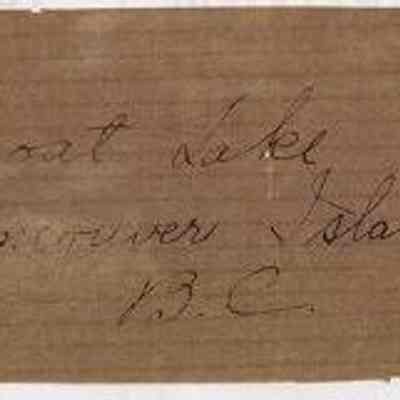 oat Lake
ncouver Isla
B.C.